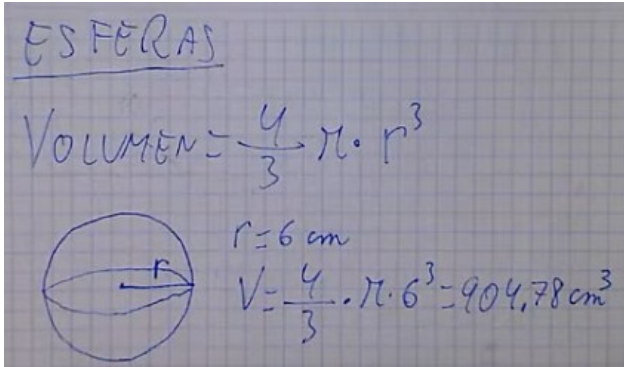 ESFERAS
VOLUMEN = 4/3 π · r³
r
r = 6 cm
V = 4/3 · π · 6³ = 904,78 cm³